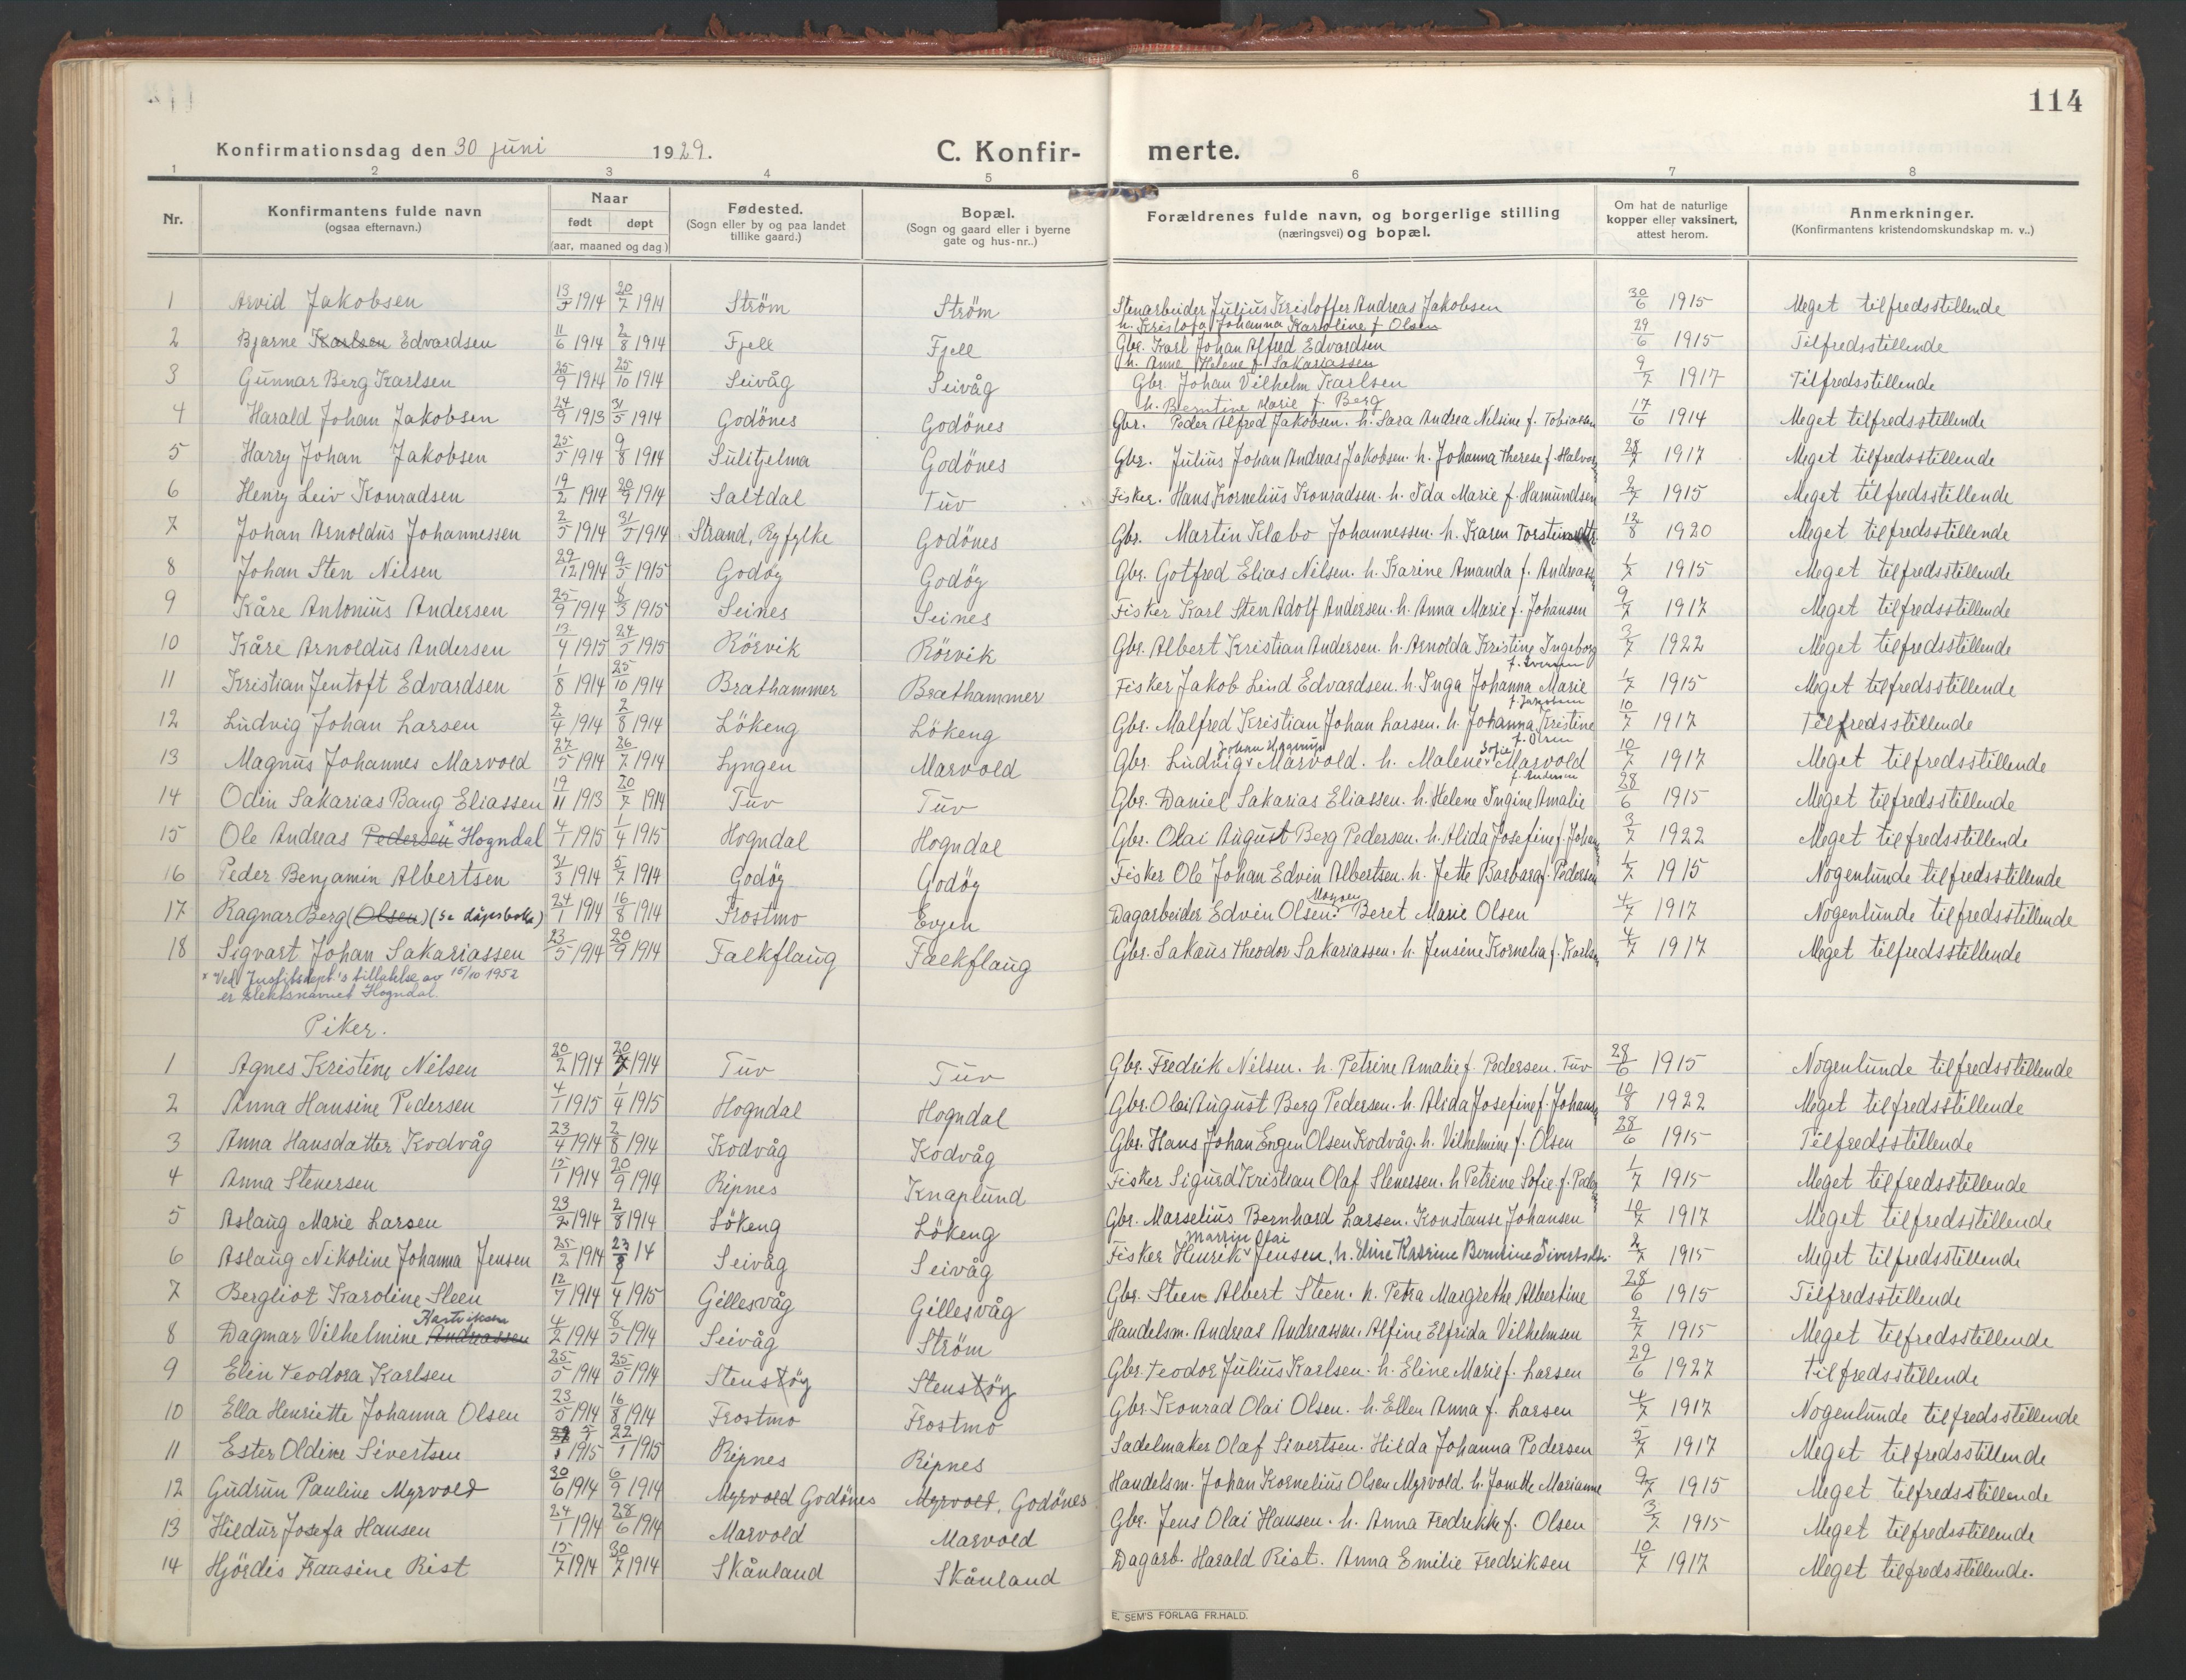 114
Konfirmationsdag den 30 juni 1929. C. Konfir- merte.
1 2 3 4 5 6 7 8
Nr. Konfirmantens fulde navn (ogsaa efternavn.) Naar født døpt (aar, maaned og dag) Fødested. (Sogn eller by og paa landet tillike gaard.) Bopæl. (Sogn og gaard eller i byerne gate og hus-nr..) Forældrenes fulde navn, og borgerlige stilling (næringsvei) og bopæl. Om hat de naturlige kopper eller vaksinert, attest herom. Anmerkninger. (Konfirmantens kristendomskundskap m. v..)
1 Arvid Jakobsen 13/5 1914 20/7 1914 Ström Ström Stenarbeider Julius Kristoffer Andreas Jakobsen 30/6 1915 Meget tilfredsstillende
h. Kristofa Johanna Karoline f Olsen
2 Bjarne Karlsen Edvardsen 11/6 1914 2/8 1914 Fjell Fjell Gbr. Karl Johan Alfred Edvardsen 29/6 1915 Tilfredsstillende
h. Anne Helene f. Sakariassen
3 Gunnar Berg Karlsen 25/9 1914 25/10 1914 Seivåg Seivåg Gbr. Johan Vilhelm Karlsen 9/7 1917 Tilfredsstillende
h. Berntine Marie f. Berg
4 Harald Johan Jakobsen 24/9 1913 31/5 1914 Godönes Godönes Gbr. Peder Alfred Jakobsen. h. Sara Andrea Nelsine f. Tobiassen 17/6 1914 Meget tilfredsstillende
5 Harry Johan Jakobsen 25/5 1914 9/8 1914 Sulitjelma Godönes Gbr. Julius Johan Andreas Jakobsen. h. Johanna Therese f. Halvors 28/7 1917 Meget tilfredsstillende
6 Henry Leiv Konradsen 19/2 1914 20/9 1914 Saltdal Tuv Fisker. Hans Kornelius Konradsen. h. Ida Marie f. Hamundsen 2/7 1915 Meget tilfredsstillende
7 Johan Arnoldus Johannessen 2/5 1914 31/5 1914 Strand, Ryfylke Godönes Gbr. Martin Klæbo Johannessen. h. Karen Torsteinsdtr. 12/8 1920 Meget tilfredsstillende
8 Johan Sten Nilsen 29/12 1914 9/5 1915 Godöy Godöy Gbr. Gotfred Elias Nilsen. h. Karine Amanda f. Andreass 1/7 1915 Meget tilfredsstillende
9 Kåre Antonius Andersen 25/9 1914 8/3 1915 Seines Seines Fisker Karl Sten Adolf Andersen. h. Anna Marie f. Johansen 9/7 1917 Meget tilfredsstillende
10 Kåre Arnoldus Andersen 13/4 1915 24/5 1915 Rörvik Rörvik Gbr. Albert Kristian Andersen. h. Arnolda Kristine Ingeborg 3/7 1922 Meget tilfredsstillende
f. Iversen
11 Kristian Jentoft Edvardsen 1/8 1914 25/10 1914 Brathammer Brathammer Fisker Jakob Lind Edvardsen. h. Inga Johanna Marie 1/7 1915 Meget tilfredsstillende
f. Jakobsen
12 Ludvig Johan Larsen 2/4 1914 2/8 1914 Lökeng Lökeng Gbr. Malfred Kristian Johan Larsen. h. Johanna Kristine 10/7 1917 Tilfredsstillende
f. Olsen
13 Magnus Johannes Marvold 27/5 1914 26/7 1914 Lyngen Marvold Gbr. Ludvig Johan Hagerup Marvold. h. Malene Sofie Marvold 10/7 1917 Meget tilfredsstillende
f. Andersen
14 Odin Sakarias Bang Eliassen 19/11 1913 20/7 1914 Tuv Tuv Gbr. Daniel Sakarias Eliassen. h. Helene Ingine Amalie 28/6 1915 Meget tilfredsstillende
15 Ole Andreas Pedersen * Hogndal 4/1 1915 1/4 1915 Hogndal Hogndal Gbr. Olai August Berg Pedersen. h. Alida Josefine f. Johans 3/7 1922 Meget tilfredsstillende
16 Peder Benjamin Albertsen 31/3 1914 5/7 1914 Godöy Godöy Fisker Ole Johan Edvin Albertsen. h. Jette Barbara f. Pedersen 1/7 1915 Nogenlunde tilfredsstillende
17 Ragnar Berg (Olsen) (se dåpsboka) 24/1 1914 16/8 1914 Frostmo Evjen Dagarbeider Edvin Olsen. Beret Marie Olsen 4/7 1917 Nogenlunde tilfredsstillende
18 Sigvart Johan Sakariassen 23/5 1914 20/9 1914 Falkflaug Falkflaug Gbr. Sakæus Theodor Sakariassen. h. Jensine Kornelia f. Karlsen 4/7 1917 Meget tilfredsstillende
* Ved Justitsdept's tillatelse av 15/10 1952
er slektsnavnet Hogndal.
Piker.
1 Agnes Kristine Nilsen 20/2 1914 20/7 1914 Tuv Tuv Gbr. Fredrik Nilsen. h. Petrine Amalie f. Pedersen. Tuv 28/6 1915 Nogenlunde tilfredsstillende
2 Anna Hansine Pedersen 4/1 1915 1/4 1915 Hogndal Hogndal Gbr. Olai August Berg Pedersen. h. Alida Josefine f. Johans 10/8 1922 Meget tilfredsstillende
3 Anna Hansdatter Kodvåg 23/4 1914 2/8 1914 Kodvåg Kodvåg Gbr. Hans Johan Engen Olsen Kodvåg. h. Vilhelmine f. Olsen 28/6 1915 Tilfredsstillende
4 Anna Stenersen 15/1 1914 20/9 1914 Ripnes Knaplund Fisker Sigurd Kristian Olaf Stenersen. h Petrine Sofie f. Peder 1/7 1915 Meget tilfredsstillende
5 Aslaug Marie Larsen 23/2 1914 2/8 1914 Lökeng Lökeng Gbr. Marselius Bernhard Larsen. Konstanse Johansen 10/7 1917 Meget tilfredsstillende
6 Aslaug Nikoline Johanna Jensen 25/2 1914 23/8 14 Seivåg Seivåg Fisker Henrik Martin Olai Jensen. h. Eline Katrine Berntine Sivertsdtr. 2/7 1915 Meget tilfredsstillende
7 Bergliot Karoline Steen 12/7 1914 1/4 1915 Gillesvåg Gillesvåg Gbr. Steen Albert Steen. h. Petra Margrethe Albertine 28/6 1915 Tilfredsstillende
8 Dagmar Vilhelmine Andreassen 4/2 1914 8/5 1914 Seivåg Ström Handelsm. Andreas Andreassen. Alfine Elfrida Vilhelmsen 2/7 1915 Meget tilfredsstillende
9 Elin Teodora Karlsen 25/5 1914 25/5 1914 Stenstöy Stenstöy Gbr. Teodor Julius Karlsen. h. Eline Marie f. Larsen 29/6 1927 Tilfredsstillende
10 Ella Henriette Johanna Olsen 23/5 1914 16/8 1914 Frostmo Frostmo Gbr. Konrad Olai Olsen. h. Ellen Anna f. Larsen 4/7 1917 Nogenlunde tilfredsstillende
11 Ester Oldine Sivertsen 1915 22/1 1915 Ripnes Ripnes Sadelmaker Olaf Sivertsen. Hilda Johanna Pedersen 2/7 1917 Meget tilfredsstillende
12 Gudrun Pauline Myrvold 30/6 1914 6/9 1914 Myrvold Godönes Myrvold, Godönes Handelsm. Johan Kornelius Olsen Myrvold h. Jonette Marianne 9/7 1915 Meget tilfredsstillende
13 Hildur Josefa Hansen 24/1 1914 28/6 1914 Marvold Marvold Gbr. Jens Olai Hansen. h. Anna Fredrikke f. Olsen 3/7 1915 Meget tilfredsstillende
14 Hjördis Fransine Rist 15/7 1914 30/7 1914 Skånland Skånland Dagarb. Harald Rist. Anna Emilie Fredriksen 10/7 1917 Meget tilfredsstillende.
E. SEM'S FORLAG FR.HALD.